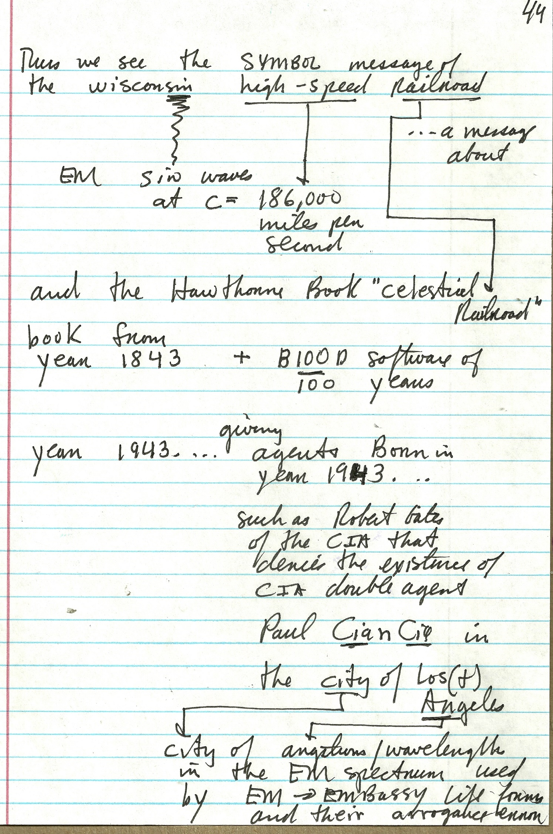 44
Thus we see the SYMBOL message of
the wisconsin high-speed Railroad
...a message
about
EM sin waves
at c = 186,000
miles per
second
and the Hawthorne Book "celestial
Railroad"
book from
year 1843 + B100D software of
100 years
giving
year 1943.... agents Born in
year 1943...
such as Robert Gates
of the CIA that
denies the existence of
CIA double agent
Paul Cian Cie in
the city of Los(t)
Angeles
city of angstrums/wavelength
in the EM spectrum used
by EM → EMBassy life forms
and their arrogance